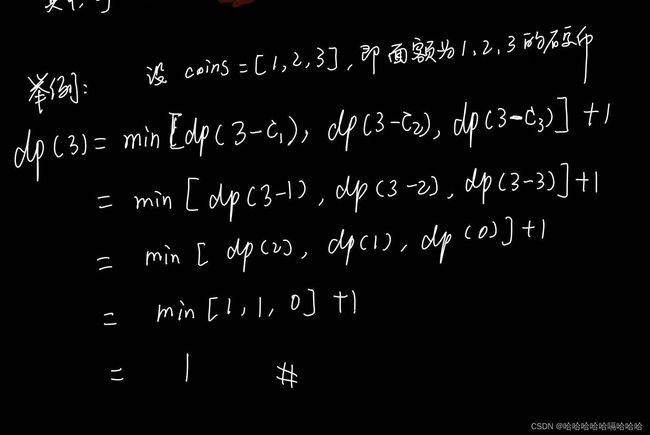 举例: 设 coins = [1,2,3], 即面额为1,2,3的硬币
dp(3) = min[dp(3-C₁), dp(3-C₂), dp(3-C₃)] + 1
= min[dp(3-1), dp(3-2), dp(3-3)] + 1
= min[dp(2), dp(1), dp(0)] + 1
= min[1,1,0] + 1
= 1 #
CSDN @哈哈哈哈哈嗝哈哈哈